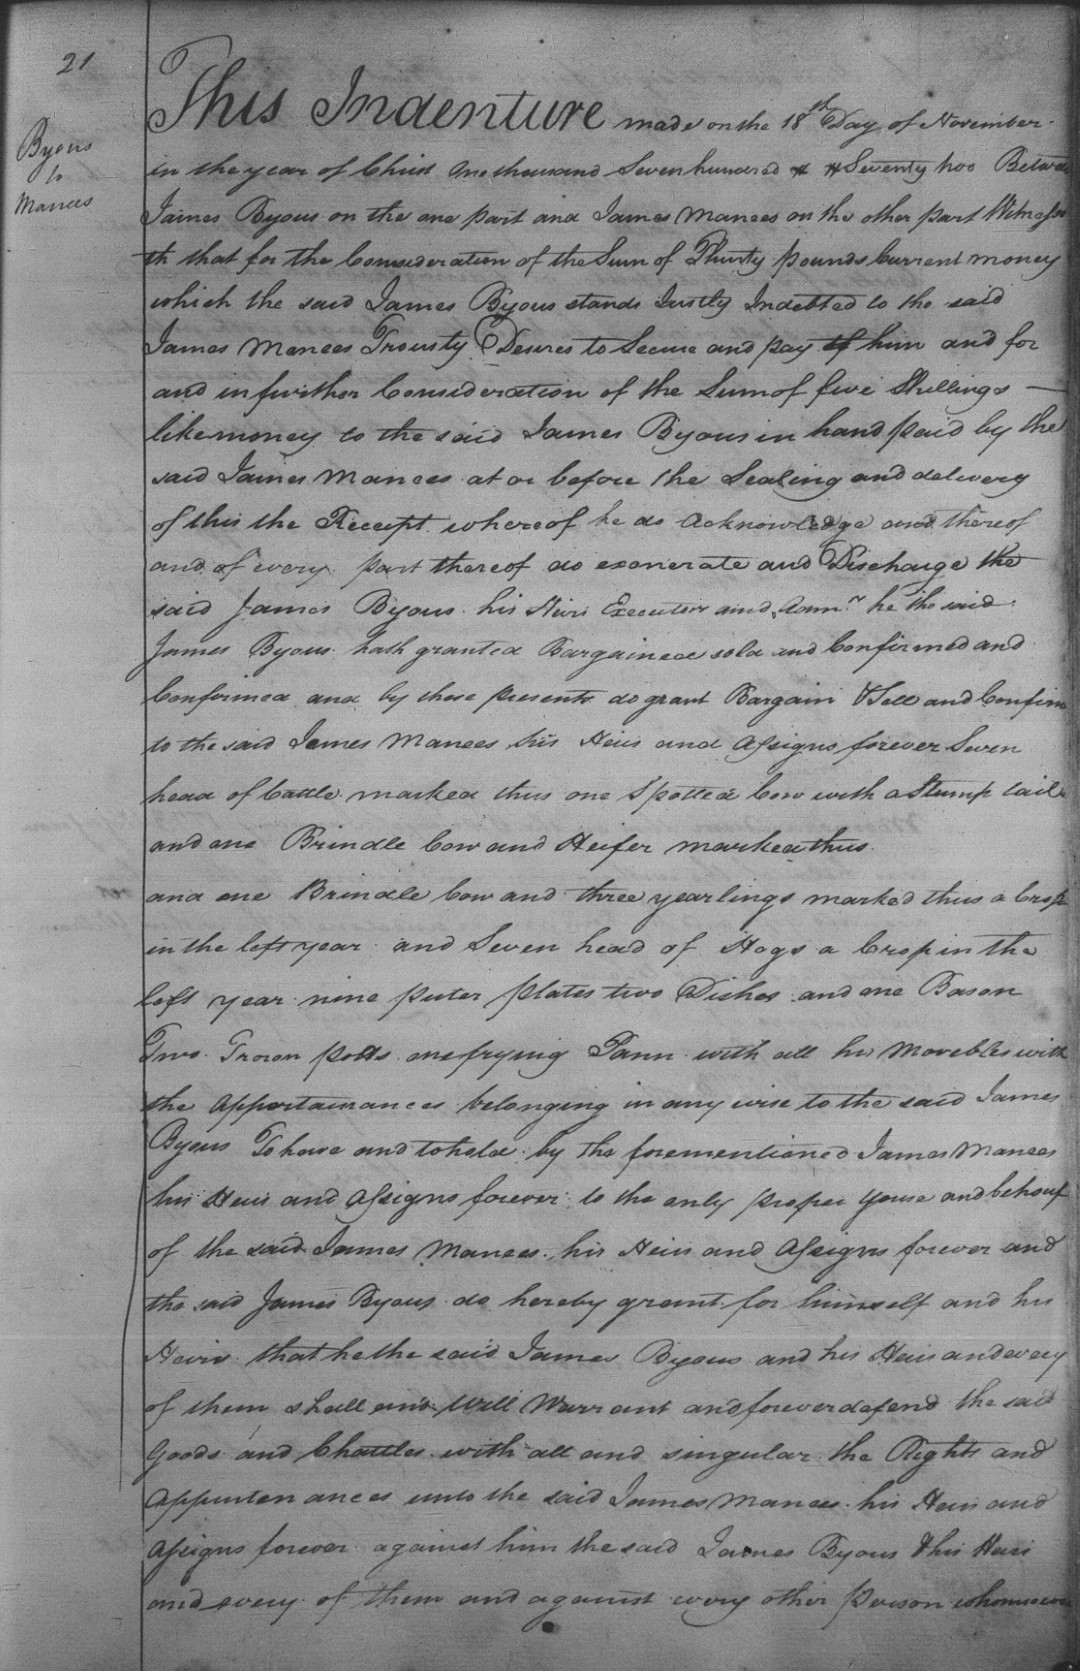 21
Byous
to
Manees
This Indenture made on the 18th Day of November
in the year of Christ one thousand Seven hundred & Seventy two Between
James Byous on the one part and James Manees on the other part Witnesse
th that for the Consideration of the Sum of Thirty pounds Current money
which the said James Byous stands Justly Indebted to the said
James Manees Trusty Desires to Secure and pay him and for
and in further Consideration of the Sum of five Shillings
like money to the said James Byous in hand paid by the
said James Manees at or before the Sealing and delivery
of this the Receipt whereof he do acknowledge and thereof
and of every part thereof do exonerate and Discharge the
said James Byous his Heirs Executors and Admrs he the said
James Byous hath granted Bargained sold and Confirmed and
Confirmed and by these presents do grant Bargain & Sell and Confirm
to the said James Manees his Heirs and assigns forever Seven
head of Cattle marked thus one Spotted Cow with a Stump tail
and one Brindle Cow and Heifer marked thus
and one Brindle Cow and three yearlings marked thus a Crop
in the left year and Seven head of Hogs a Crop in the
left year nine puter plates two Dishes and one Bason
Two Irown potts one frying Pann with all his Movebles with
the appertainances belonging in any wise to the said James
Byous To have and to hold by the forementioned James Manees
his Heirs and assigns forever to the only proper youse and behouf
of the said James Manees his Heirs and Assigns forever and
the said James Byous do hereby grant for himself and his
Heirs that he the said James Byous and his Heirs and every
of them shall and Will Warrant and forever defend the said
Goods and Chattles with all and singular the Rights and
appurtenances unto the said James Manees his Heirs and
assigns forever against him the said James Byous & his Heirs
and every of them and against every other person whomsoever